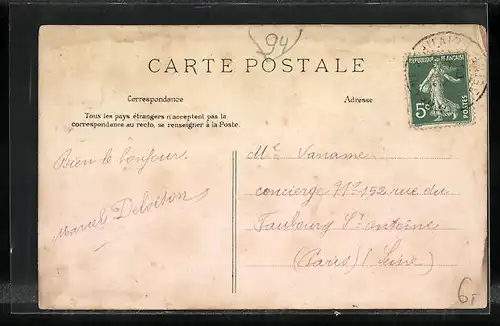 94
CARTE POSTALE
RÉPUBLIQUE FRANÇAISE
5c POSTES
Correspondance
Adresse
Tous les pays étrangers n'acceptent pas la
correspondance au recto, se renseigner à la Poste.
Bien le bonjour.
Marcel
Mr Vaname
concierge No 152 rue du
Faubourg St Antoine
(Paris) (Seine)
6,-